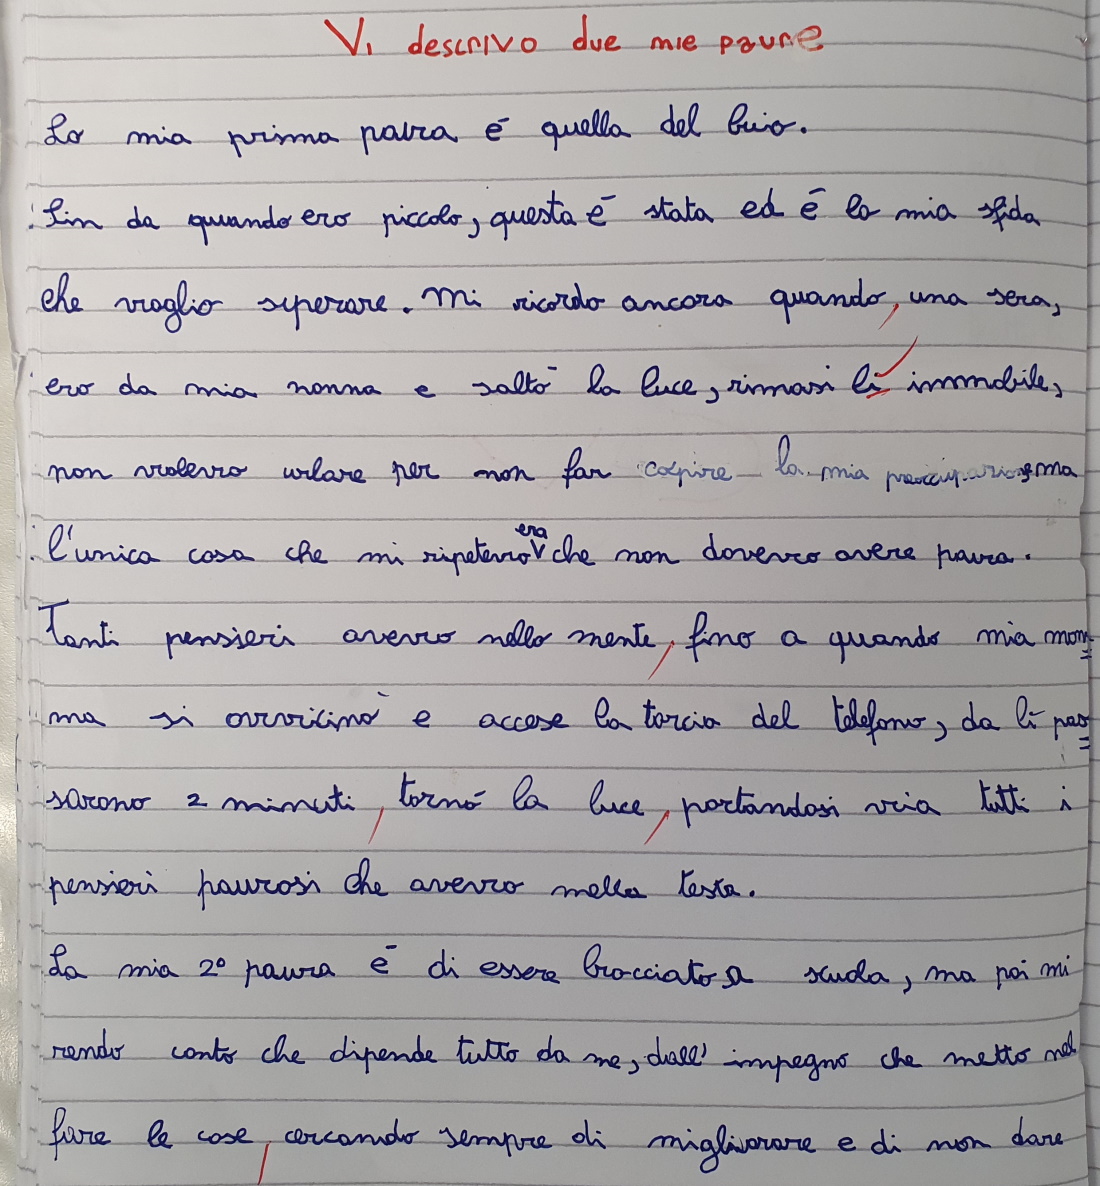 Vi descrivo due mie paure
La mia prima paura è quella del buio.
Fin da quando ero piccolo, questa è stata ed è la mia sfida
che voglio superare. Mi ricordo ancora quando, una sera,
ero da mia nonna e saltò la luce, rimasi lì immobile,
non volevo urlare per non far capire la mia preoccupazione, ma
l'unica cosa che mi ripetevo era che non dovevo avere paura.
Tanti pensieri avevo nella mente, fino a quando mia non-
na si avvicinò e accese la torcia del telefono, da lì pas
sarono 2 minuti, tornò la luce, portandosi via tutti i
pensieri paurosi che avevo nella testa.
La mia 2° paura è di essere bocciato a scuola, ma poi mi
rendo conto che dipende tutto da me, dall' impegno che metto nel
fare le cose, cercando sempre di migliorare e di non dare